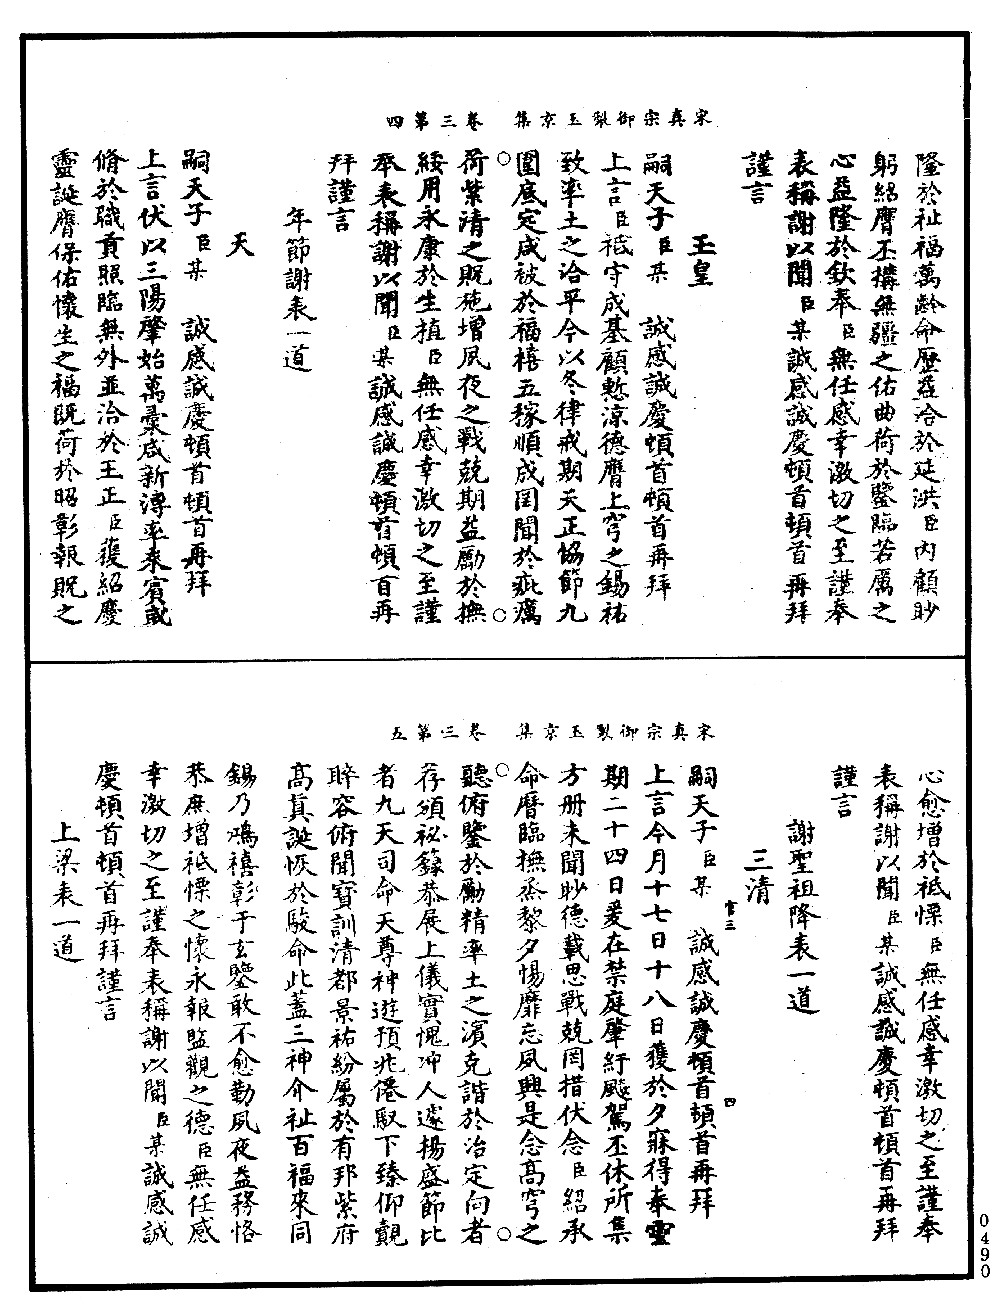 宋真宗御製玉京集　卷三第四
隆於祉福萬齡命歷茲洽於延洪臣內顧眇
躬紹膺丕搆無疆之佑曲荷於鑒臨若厲之
心益隆於欽奉臣無任感幸激切之至謹奉
表稱謝以聞臣某誠感誠慶頓首頓首再拜
謹言
玉皇
嗣天子臣某　誠感誠慶頓首頓首再拜
上言臣祗守成基顧慙涼德膺上穹之錫祐
致率土之洽平今以冬律戒期天正協節九
圍底定咸被於福禧五稼順成罔聞於疵癘
荷紫清之貺施增夙夜之戰兢期益勵於撫
綏用永康於生植臣無任感幸激切之至謹
奉表稱謝以聞臣某誠感誠慶頓首頓百再
拜謹言
年節謝表一道
天
嗣天子臣某　誠感誠慶頓首頓首再拜
上言伏以三陽肇始萬彙咸新溥率來賓咸
脩於職貢照臨無外並洽於王正臣獲紹慶
靈誕膺保佑懷生之福既荷於昭彰報貺之
宋真宗御製玉京集　卷三第五
心愈增於祗慄臣無任感幸激切之至謹奉
表稱謝以聞臣某誠感誠慶頓首頓首再拜
謹言
謝聖祖降表一道
三清
官三　四
嗣天子臣某　誠感誠慶頓首頓首再拜
上言今月十七日十八日獲於夕寐得奉靈
期二十四日爰在禁庭肇紆飈駕丕休所集
方册未聞眇德載思戰兢罔措伏念臣紹承
命曆臨撫烝黎夕惕靡忘夙興是念高穹之
聽俯鑒於勵精率土之濱克諧於治定向者
荐頒祕籙恭展上儀實愧冲人遽揚盛節比
者九天司命天尊神遊預兆僊馭下臻仰覿
睟容俯聞寶訓清都景祐紛屬於有邦紫府
高真誕恢於駿命此蓋三神介祉百福來同
錫乃鴻禧彰于玄鑒敢不愈勤夙夜益務恪
恭庶增祗慄之懷永報監觀之德臣無任感
幸激切之至謹奉表稱謝以聞臣某誠感誠
慶頓首頓首再拜謹言
上梁表一道
0490